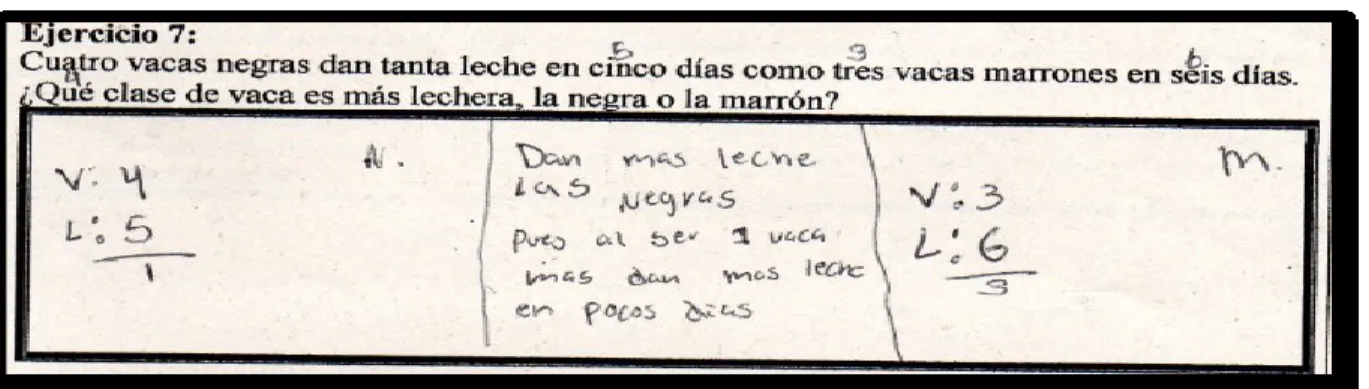 Ejercicio 7:
5 3 6
Cuatro vacas negras dan tanta leche en cinco días como tres vacas marrones en seis días.
4
¿Qué clase de vaca es más lechera, la negra o la marrón?
N.
V: 4
L: 5
1
Dan mas leche
las Negras
pues al ser 1 vaca
mas dan mas leche
en pocos dias
m.
V: 3
L: 6
3